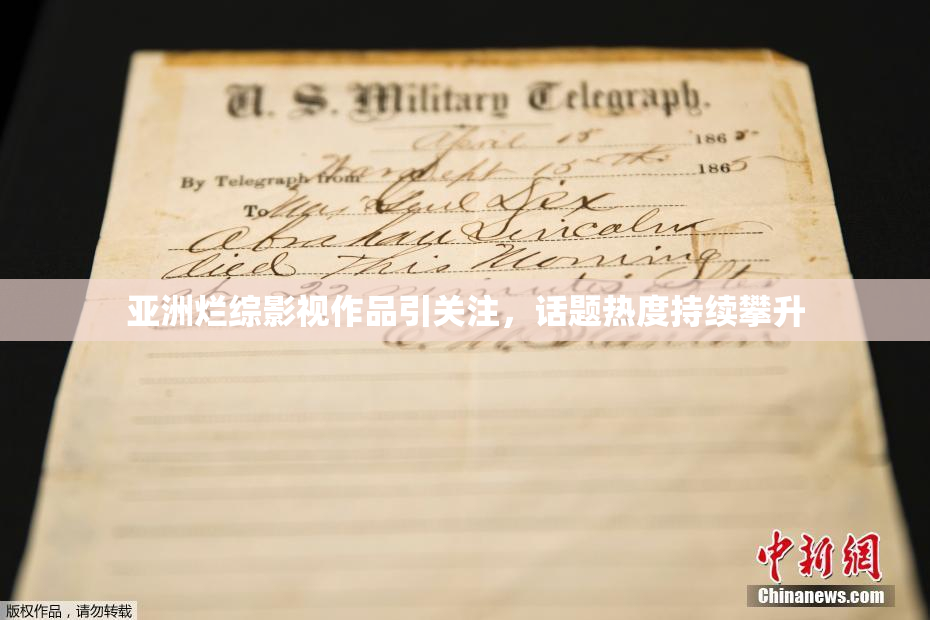 U. S. Military Telegraph.
April 15 1865
By Telegraph from War Dept 15th 1865
To Maj Genl Dix
Abraham Lincoln
died This Morning
at 22 minutes after
亚洲烂综影视作品引关注，话题热度持续攀升
E. M. Stanton
中新網
Chinanews.com
版权作品，请勿转载